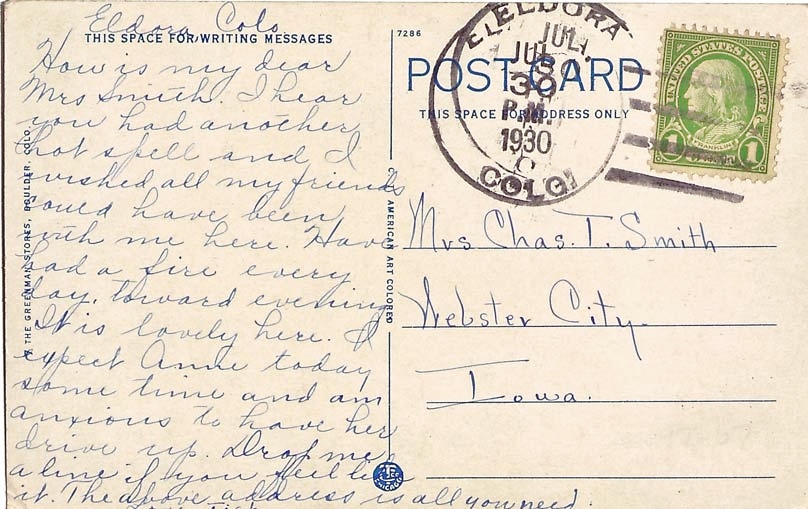 Eldora, Colo
THIS SPACE FOR WRITING MESSAGES
How is my dear
Mrs Smith. I hear
you had another
hot spell and I
wished all my friends
could have been
with me here. Have
had a fire every
day, toward evening
It is lovely here. I
expect Anne today
some time and am
anxious to have her
drive up. Drop me
a line if you feel like
it. The above address is all you need.
THE GREENMAN STORES, BOULDER, COLO.
AMERICAN ART COLORED
7286
POST CARD
THIS SPACE FOR ADDRESS ONLY
ELDORA
JUL
30
P.M.
1930
COLO.
UNITED STATES POSTAGE
FRANKLIN
1 1
Mrs Chas. T. Smith
Webster City-
Iowa.